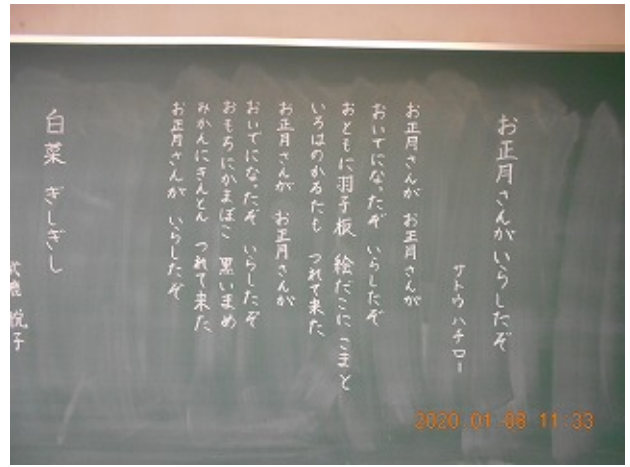 お正月さんがいらしたぞ
サトウハチロー
お正月さんが お正月さんが
おいでになったぞ いらしたぞ
おともに羽子板 絵だこに こまと
いろはのかるたも つれて来た
お正月さんが お正月さんが
おいでになったぞ いらしたぞ
おもちにかまぼこ 黒いまめ
みかんにきんとん つれて来た
お正月さんが いらしたぞ
白菜 ぎしぎし
武鹿 悦子
2020.01.08 11:33